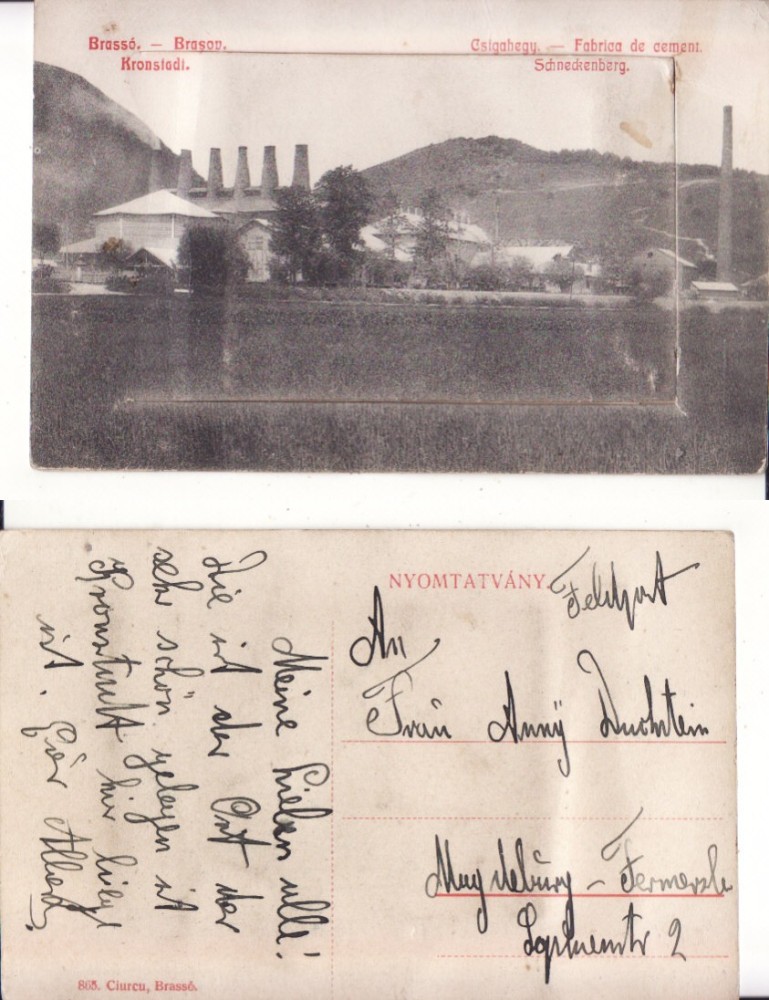 Brassó. — Brașov.
Kronstadt.
Csigahegy. — Fabrica de cement.
Schneckenberg.
NYOMTATVÁNY.
Feldpost
An
Frau Anny
Magdeburg - Fermersle
2
Meine Lieben alle!
Hie ist der Ort der
sehr schön gelegen ist
Kronstatt hir liegt
ist. Eür Alfred
865. Ciurcu, Brassó.